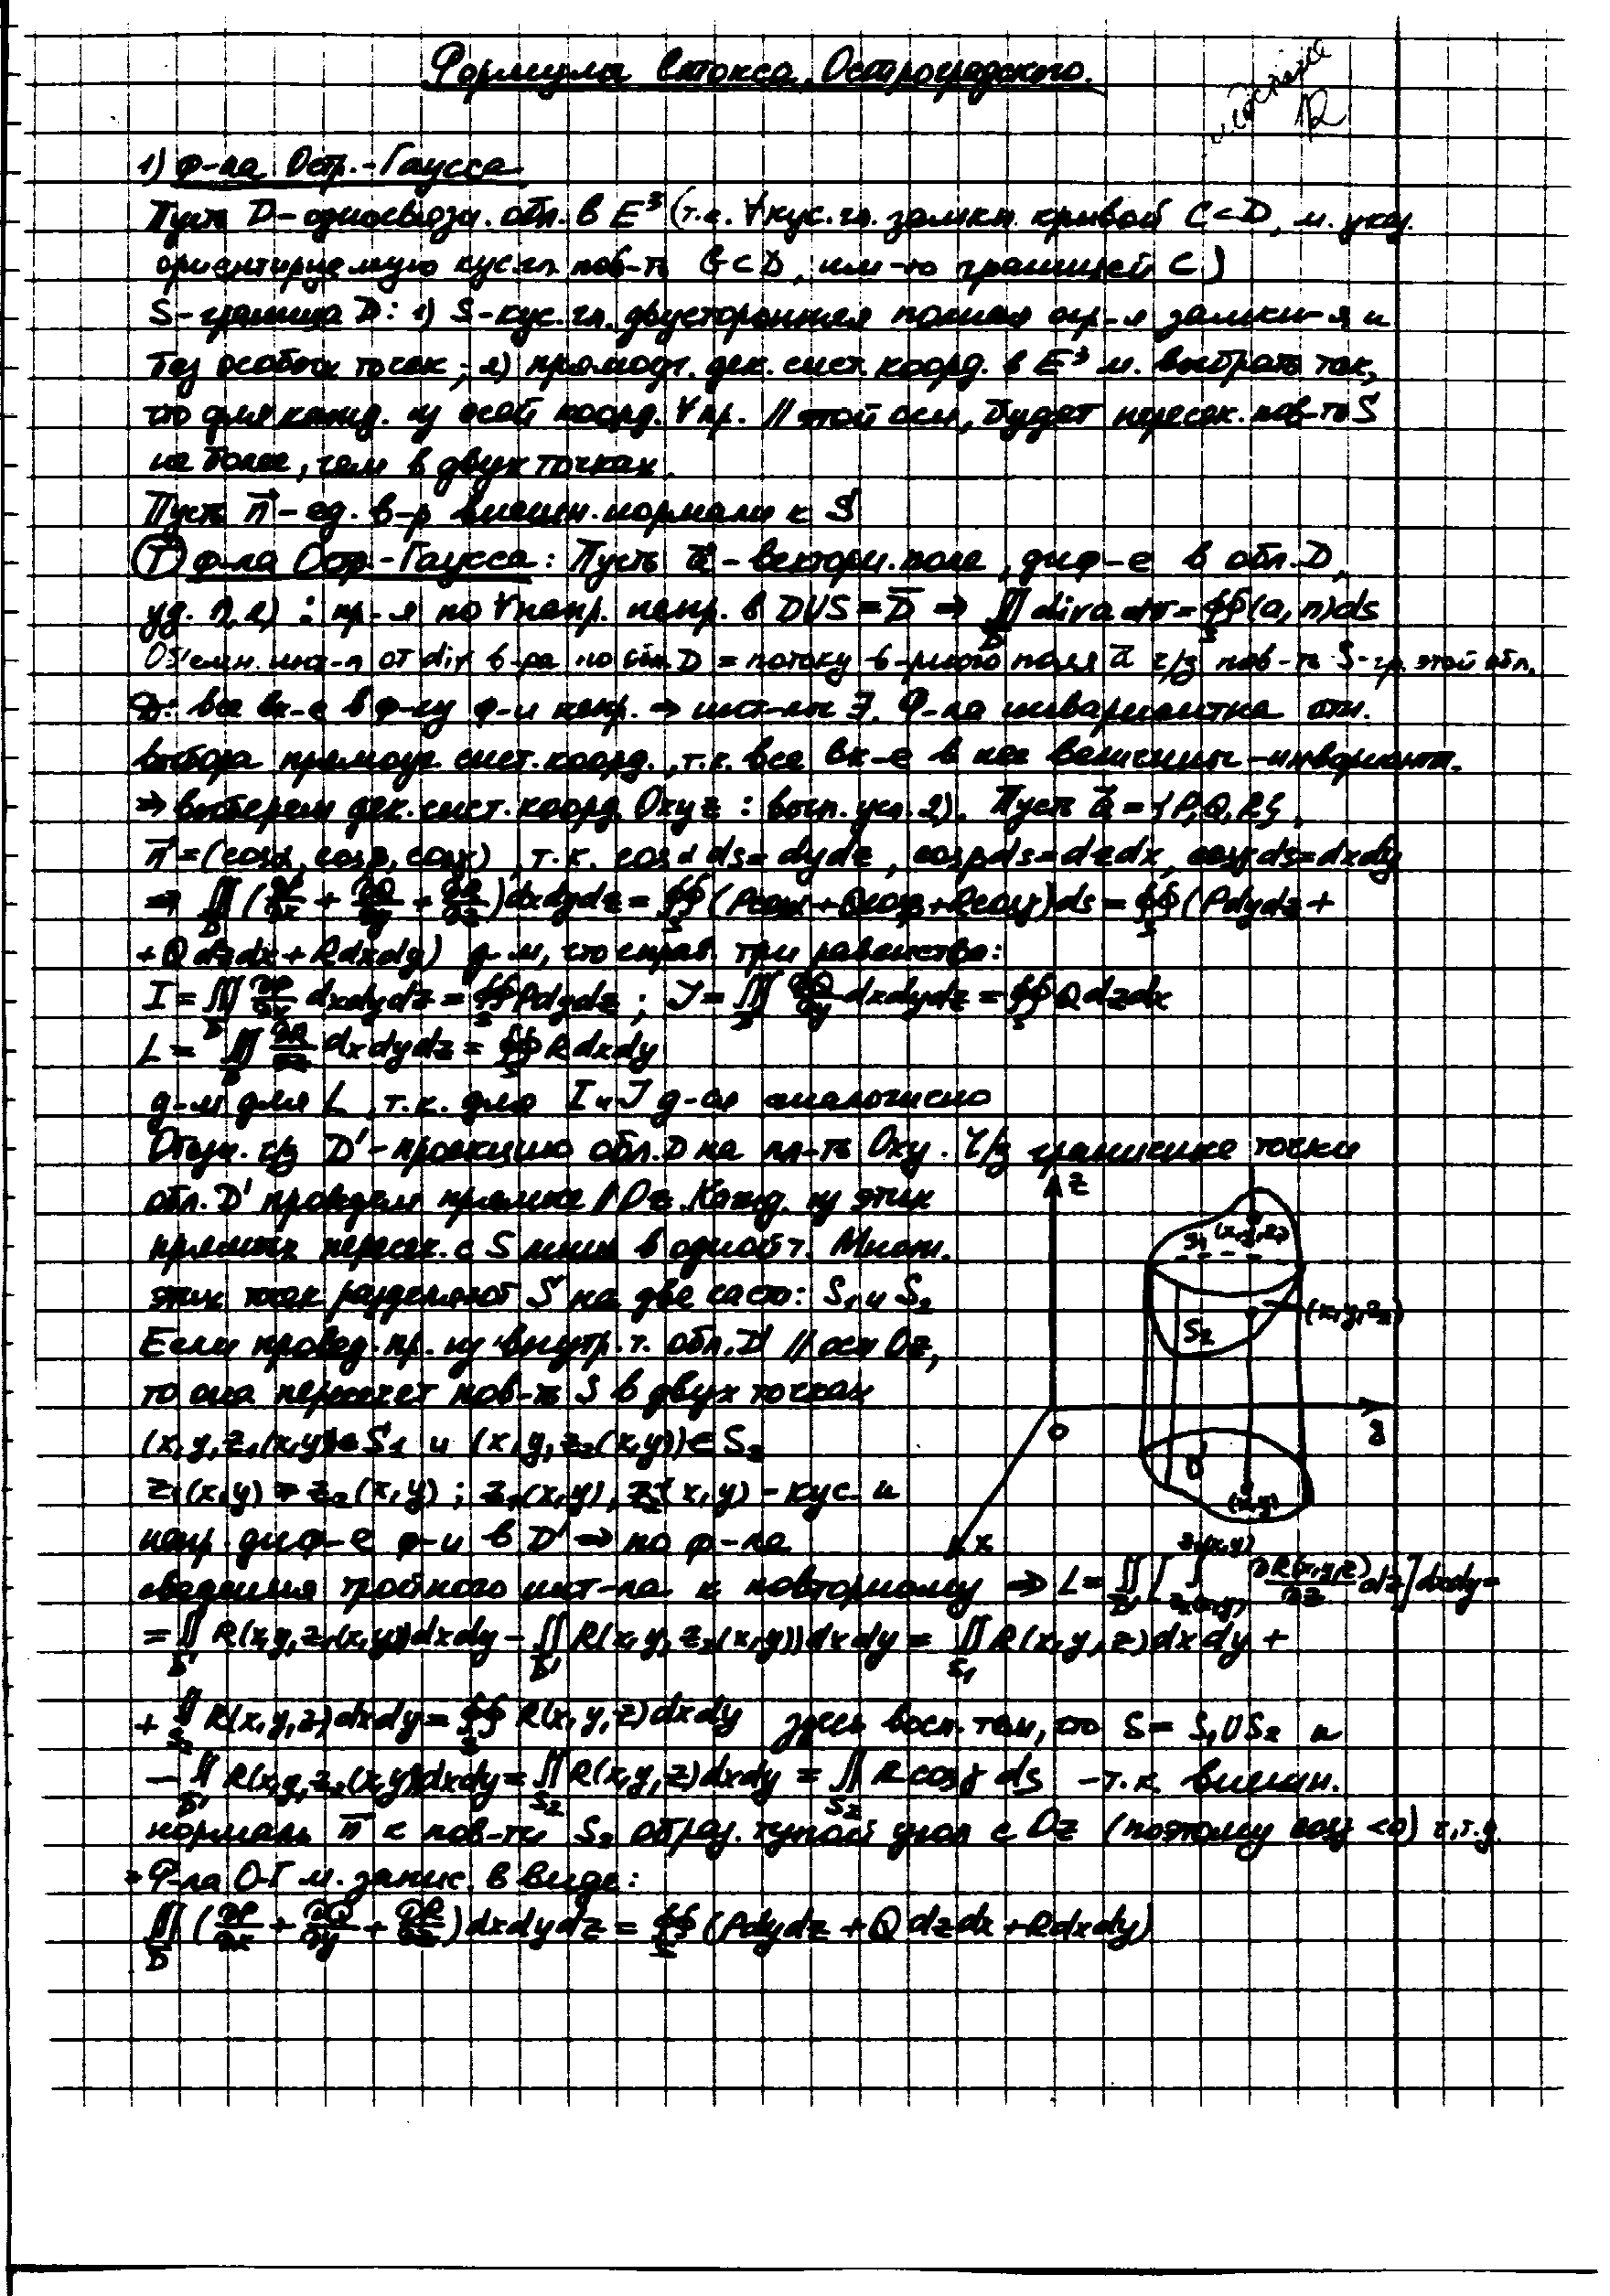 Формула Стокса, Остроградского.
12
1) ф-ла Остр.-Гаусса
Пусть D - односвязн. обл. в E³ (т.е. ∀ кус. гл. замкн. кривой C⊂D, м. указ.
ориентируемую кус. гл. пов-ть G⊂D, им-ю границей C)
S - граница D: 1) S - кус. гл. двусторонняя полная огр-я замкн-я и
без особых точек; 2) прямоуг. дек. сист. коорд. в E³ м. выбрать так,
что для кажд. из осей коорд. ∀ пр. // этой оси, будет пересек. пов-ть S
не более, чем в двух точках.
Пусть n⃗ - ед. в-р внешн. нормали к S
Ⓣ ф-ла Остр.-Гаусса: Пусть a⃗ - векторн. поле, диф-е в обл. D,
уд. 1), 2) : пр-я по ∀ напр. непр. в D∪S = D̅ ⇒ ∭_D div a dv = ∯_S (a, n) ds
Объёмн. инт-л от div в-ра по обл. D = потоку в-рного поля a̅ ч/з пов-ть S - гр. этой обл.
D: все вх-е в ф-лу ф-и непр. ⇒ инт-лы ∃. Ф-ла инвариантна отн.
выбора прямоуг. сист. коорд., т.к. все вх-е в нее величины - инвариант.
⇒ выберем дек. сист. коорд. Oxyz : вып. усл. 2). Пусть a⃗ = {P, Q, R},
n⃗ = (cosα, cosβ, cosγ), т.к. cosα ds = dydz, cosβ ds = dzdx, cosγ ds = dxdy
⇒ ∭_D (∂P/∂x + ∂Q/∂y + ∂R/∂z) dxdydz = ∯_S (Pcosα + Qcosβ + Rcosγ) ds = ∯_S (Pdydz +
+ Q dzdx + R dxdy) д-м, что справ. три равенства:
I = ∭_D ∂P/∂x dxdydz = ∯_S Pdydz ; J = ∭_D ∂Q/∂y dxdydz = ∯_S Q dzdx
L = ∭_D ∂R/∂z dxdydz = ∯_S R dxdy
д-м для L, т.к. для I и J д-ся аналогично
Обозн. ч/з D' - проекцию обл. D на пл-ть Oxy. Ч/з граничные точки
обл. D' проведем прямые // Oz. Кажд. из этих
прямых пересек. с S лишь в одной т. Множ.
этих точек разделяют S на две части: S₁ и S₂
Если провед. пр. из внутр. т. обл. D' // оси Oz,
то она пересечет пов-ть S в двух точках
(x, y, z₁(x,y)) ∈ S₁ и (x, y, z₂(x,y)) ∈ S₂
z₁(x,y) ≥ z₂(x,y) ; z₁(x,y), z₂(x,y) - кус. и
непр. диф-е ф-и в D' ⇒ по ф-ла
z
S₁
(x,y,z₁)
S₂
(x,y,z₂)
O
y
D'
(x,y)
x
сведения тройного инт-ла к повторному ⇒ L = ∬_D' [ ∫_{z₂(x,y)}^{z₁(x,y)} ∂R(x,y,z)/∂z dz ] dxdy =
= ∬_D' R(x,y,z₁(x,y)) dxdy - ∬_D' R(x,y,z₂(x,y)) dxdy = ∬_S₁ R(x,y,z) dxdy +
+ ∬_S₂ R(x,y,z) dxdy = ∯_S R(x,y,z) dxdy здесь восп. тем, что S = S₁∪S₂ и
- ∬_D' R(x,y,z₂(x,y)) dxdy = ∬_S₂ R(x,y,z) dxdy = ∬_S₂ R cosγ ds - т.к. внешн.
нормаль n⃗ к пов-ти S₂ образ. тупой угол с Oz (поэтому cosγ <0) ч.т.д.
⇒ Ф-ла О-Г м. запис. в виде:
∭_D (∂P/∂x + ∂Q/∂y + ∂R/∂z) dxdydz = ∯_S (Pdydz + Q dzdx + R dxdy)